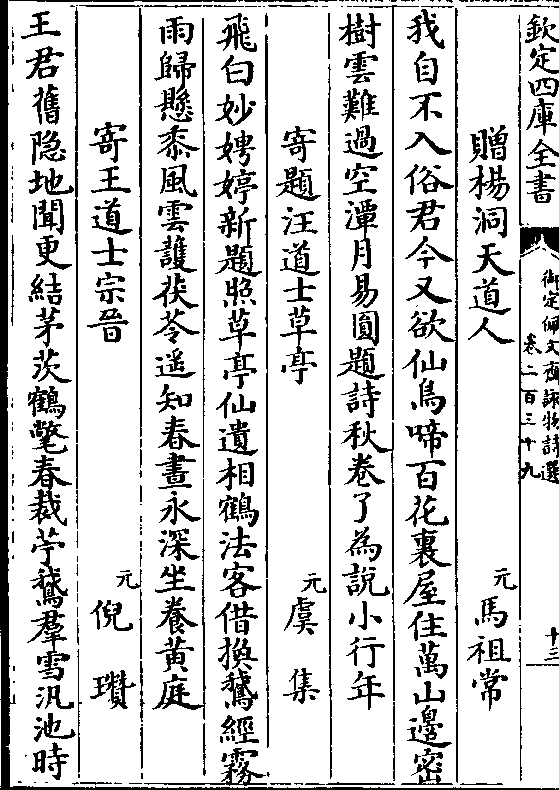 欽定四庫全書
御定佩文齋詠物詩選
卷二百三十九
十三
贈楊洞天道人
元 馬祖常
我自不入俗君今又欲仙鳥啼百花裏屋住萬山邊密
樹雲難過空潭月易圓題詩秋卷了為說小行年
寄題汪道士草亭
元 虞集
飛白妙娉婷新題照草亭仙遺相鶴法客借換鵞經霧
雨歸懸黍風雲護茯苓遥知春晝永深坐養黄庭
寄王道士宗晉
元 倪瓚
王君舊隐地聞更結茅茨鶴氅春裁苧鵞羣雪汎池時